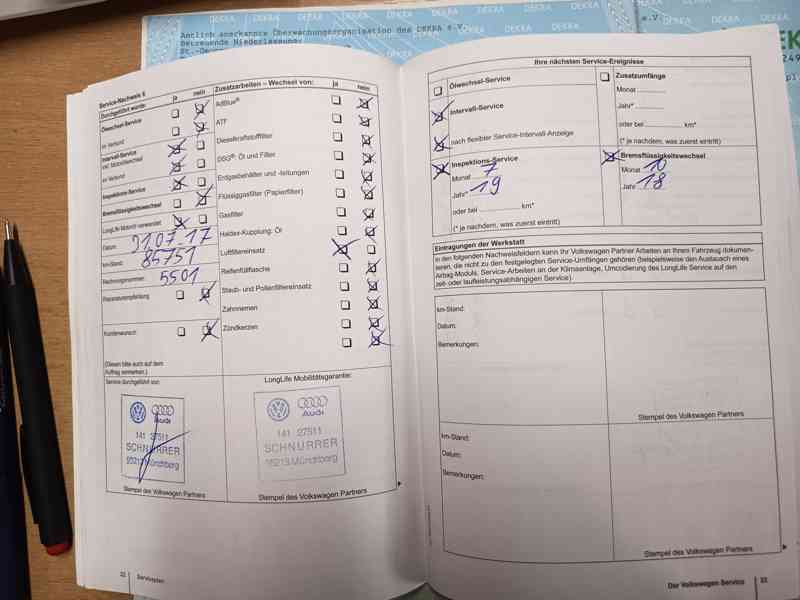 DEKRA
Amtlich anerkannte Überwachungsorganisation des DEKRA e.V.
Betreuende Niederlassung:
e.V.
Service-Nachweis 6
Durchgeführt wurde:
ja
nein
Ölwechsel-Service
im Verbund
Intervall-Service
inkl. Motorölwechsel
im Verbund
Inspektions-Service
Bremsflüssigkeitswechsel
LongLife Motoröl verwendet
Datum:
21.07.17
km-Stand:
85751
Rechnungsnummer:
5501
Reparaturempfehlung
Kundenwunsch:
(Diesen bitte auch auf dem
Auftrag vermerken.)
Service durchgeführt von:
Audi
141 27511
SCHNURRER
95213 Münchberg
Stempel des Volkswagen Partners
Zusatzarbeiten – Wechsel von:
ja
nein
AdBlue®
ATF
Dieselkraftstofffilter
DSG®: Öl und Filter
Erdgasbehälter und -leitungen
Flüssiggasfilter (Papierfilter)
Gasfilter
Haldex-Kupplung: Öl
Luftfiltereinsatz
Reifenfüllflasche
Staub- und Pollenfiltereinsatz
Zahnriemen
Zündkerzen
LongLife Mobilitätsgarantie:
Audi
141 27511
SCHNURRER
95213 Münchberg
Stempel des Volkswagen Partners
32
Serviceplan
Ihre nächsten Service-Ereignisse
Ölwechsel-Service
Intervall-Service
nach flexibler Service-Intervall-Anzeige
Inspektions-Service
Monat 7
Jahr* 19
oder bei km*
(* je nachdem, was zuerst eintritt)
Zusatzumfänge
Monat
Jahr*
oder bei km*
(* je nachdem, was zuerst eintritt)
Bremsflüssigkeitswechsel
Monat 10
Jahr 18
Eintragungen der Werkstatt
In den folgenden Nachweisfeldern kann Ihr Volkswagen Partner Arbeiten an Ihrem Fahrzeug dokumen-
tieren, die nicht zu den festgelegten Service-Umfängen gehören (beispielsweise den Austausch eines
Airbag-Moduls, Service-Arbeiten an der Klimaanlage, Umcodierung des LongLife Service auf den
zeit- oder laufleistungsabhängigen Service).
km-Stand:
Datum:
Bemerkungen:
Stempel des Volkswagen Partners
km-Stand:
Datum:
Bemerkungen:
Stempel des Volkswagen Partners
Der Volkswagen Service
33